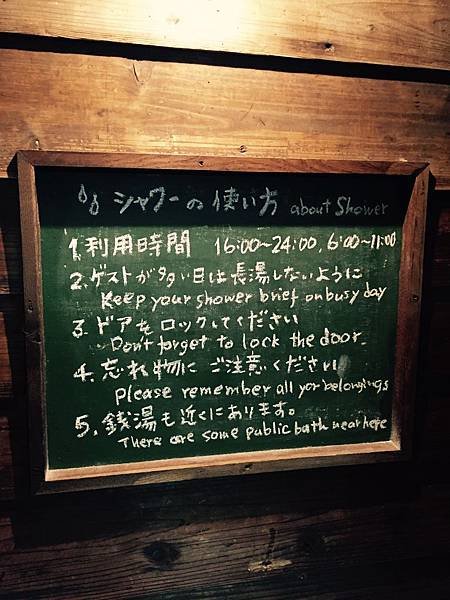 シャワーの使い方 about Shower
1. 利用時間 16:00~24:00, 6:00~11:00
2. ゲストが多い日は長湯しないように
Keep your shower brief on busy day
3. ドアをロックしてください
Don't forget to lock the door.
4. 忘れ物にご注意ください
please remember all yor belongings
5. 銭湯も近くにあります。
There are some public bath near here